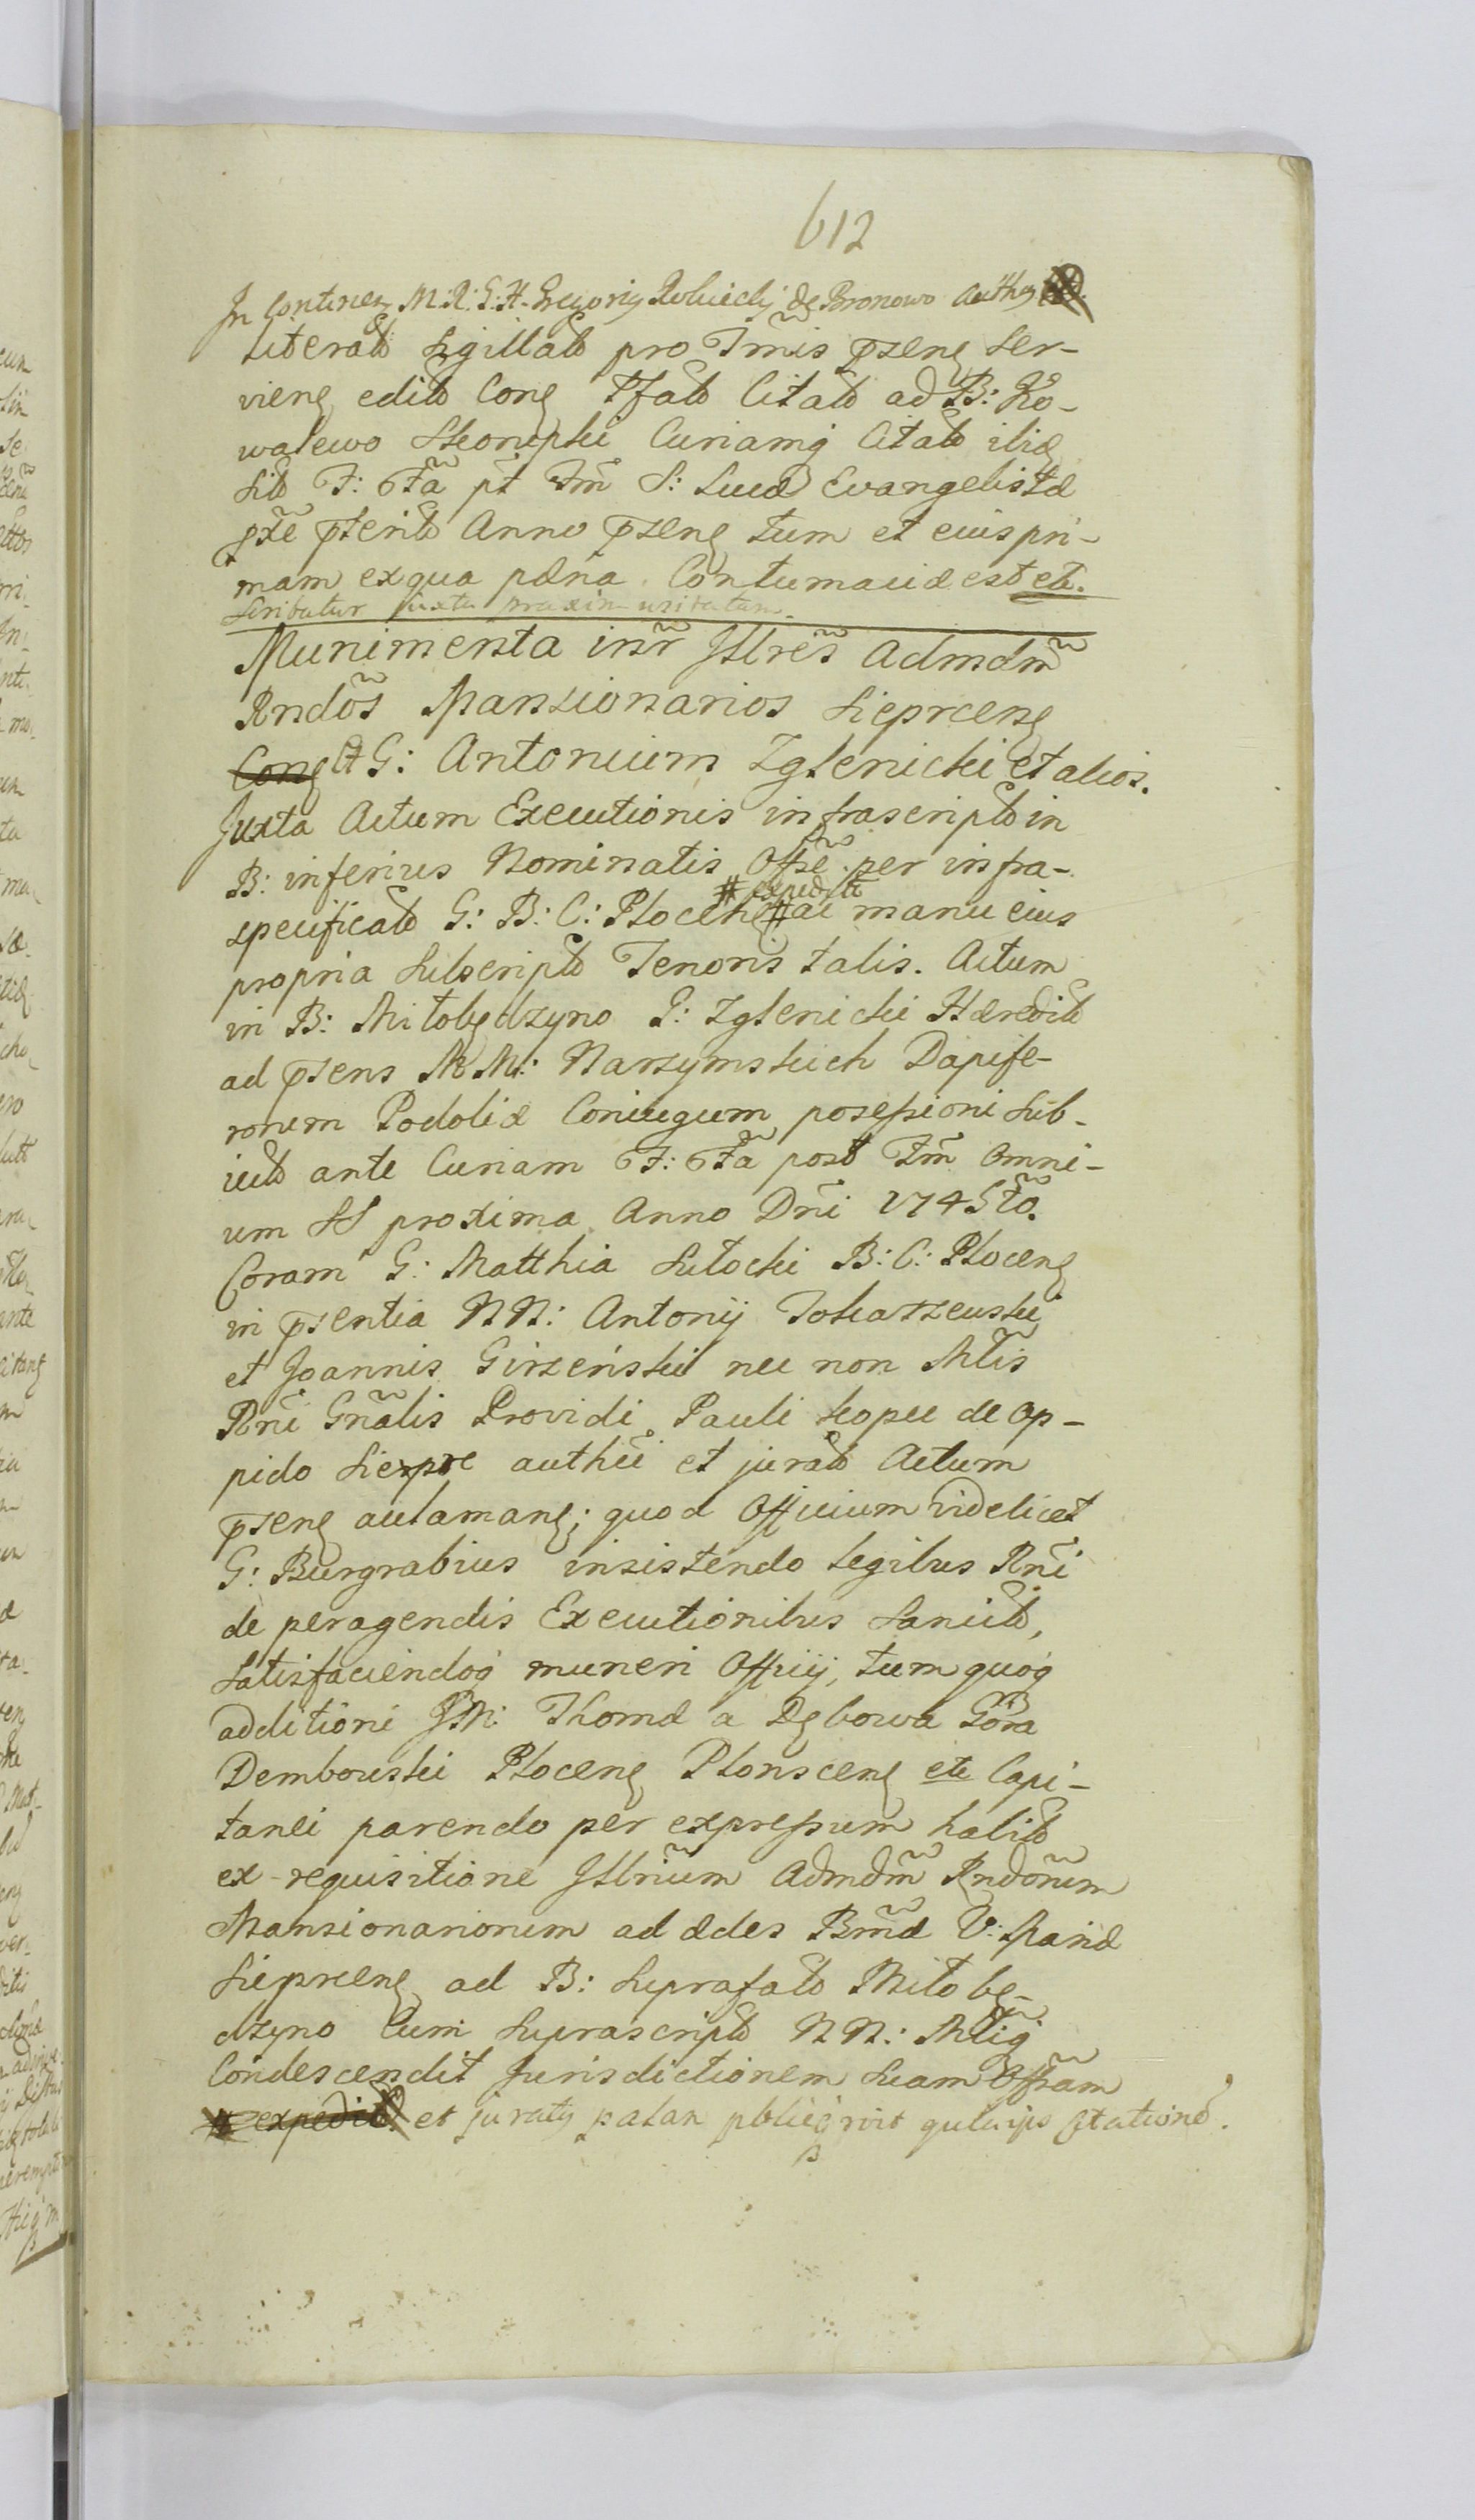 612
In Continen M: R: G: H. Gregoriy de Bronowo Authen
Literat Sigillat pro Tmis pseng Ser-
vieng edit Cong Pfat Citat ad B: Ko-
walewo Curiamq Citat
Sit F: Fta pt Fm S: Lucæ Evangelistæ
pterit Anno pseng tum et eius pri-
mam ex qua pæna Contumaciæ est etc.
Scribatur juxta praxim usitatam.
Munimenta insr Jllres Admdm
Rndos Mansionarios Sieprceng
Cong et G: Antonium Zglenicki et alios.
Juxta Actum Executionis infrascript in
B: inferius Nominatis Offse per infra-
# expedit
specificat G: B: C: Plocen # ac manu eius
propria Subscript Tenoris talis. Actum
in B: Miłobędzyno G: Zglenicki Hæredit
ad psens M M: Narzymskich Dapife-
rorum Podoliæ Coniugum posessioni Sub-
iect ante Curiam F: Fta post Fm Omni-
um SS proxima Anno Dni 1745to.
Coram G: Matthia Sutocki B: C: Ploceng
in psentia NN: Antonij Tokarzewski
et Joannis Girzeński nec non Mtis
Rni Gnalis Providi Pauli Kopec de Op-
pido Sierpre authci et jurat Actum
pseng aclamang; quod Officium videlicet
G: Burgrabius insistendo legibus Rni
de peragendis Executionibus Sancit,
Satisfaciendoq muneri Officij, tum quoq
additioni JM: Thomæ a Dębowa Góra
Dembowski Ploceng Plonsceng etc Capi-
tanei parendo per expressum habit
ex requisitione Jllrium Admdm Rndorum
Mansionariorum ad ædes Bmæ V: Mariæ
Sieprceng ad B: Suprafat Miłobę-
dzyno Cum Suprascript NN: Mtiq
Condescendit Jurisdictionem Suam Offsam
# expedit. et juraty palan